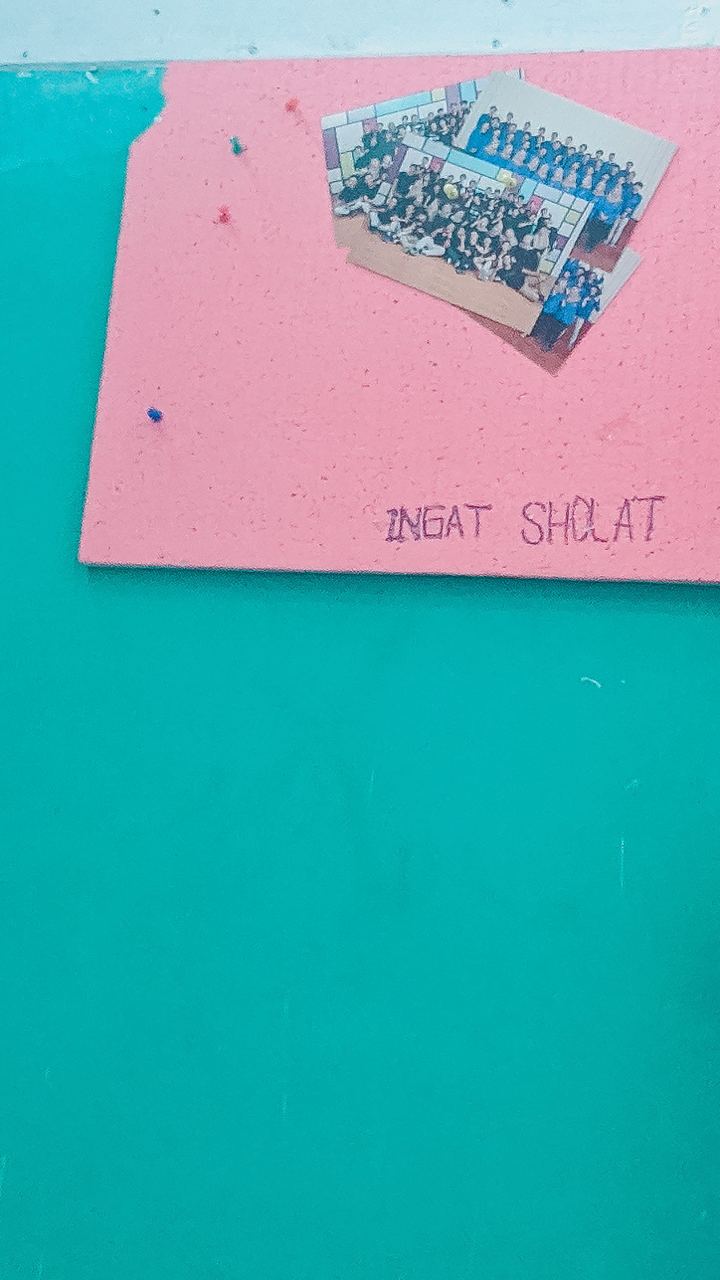 INGAT SHOLAT